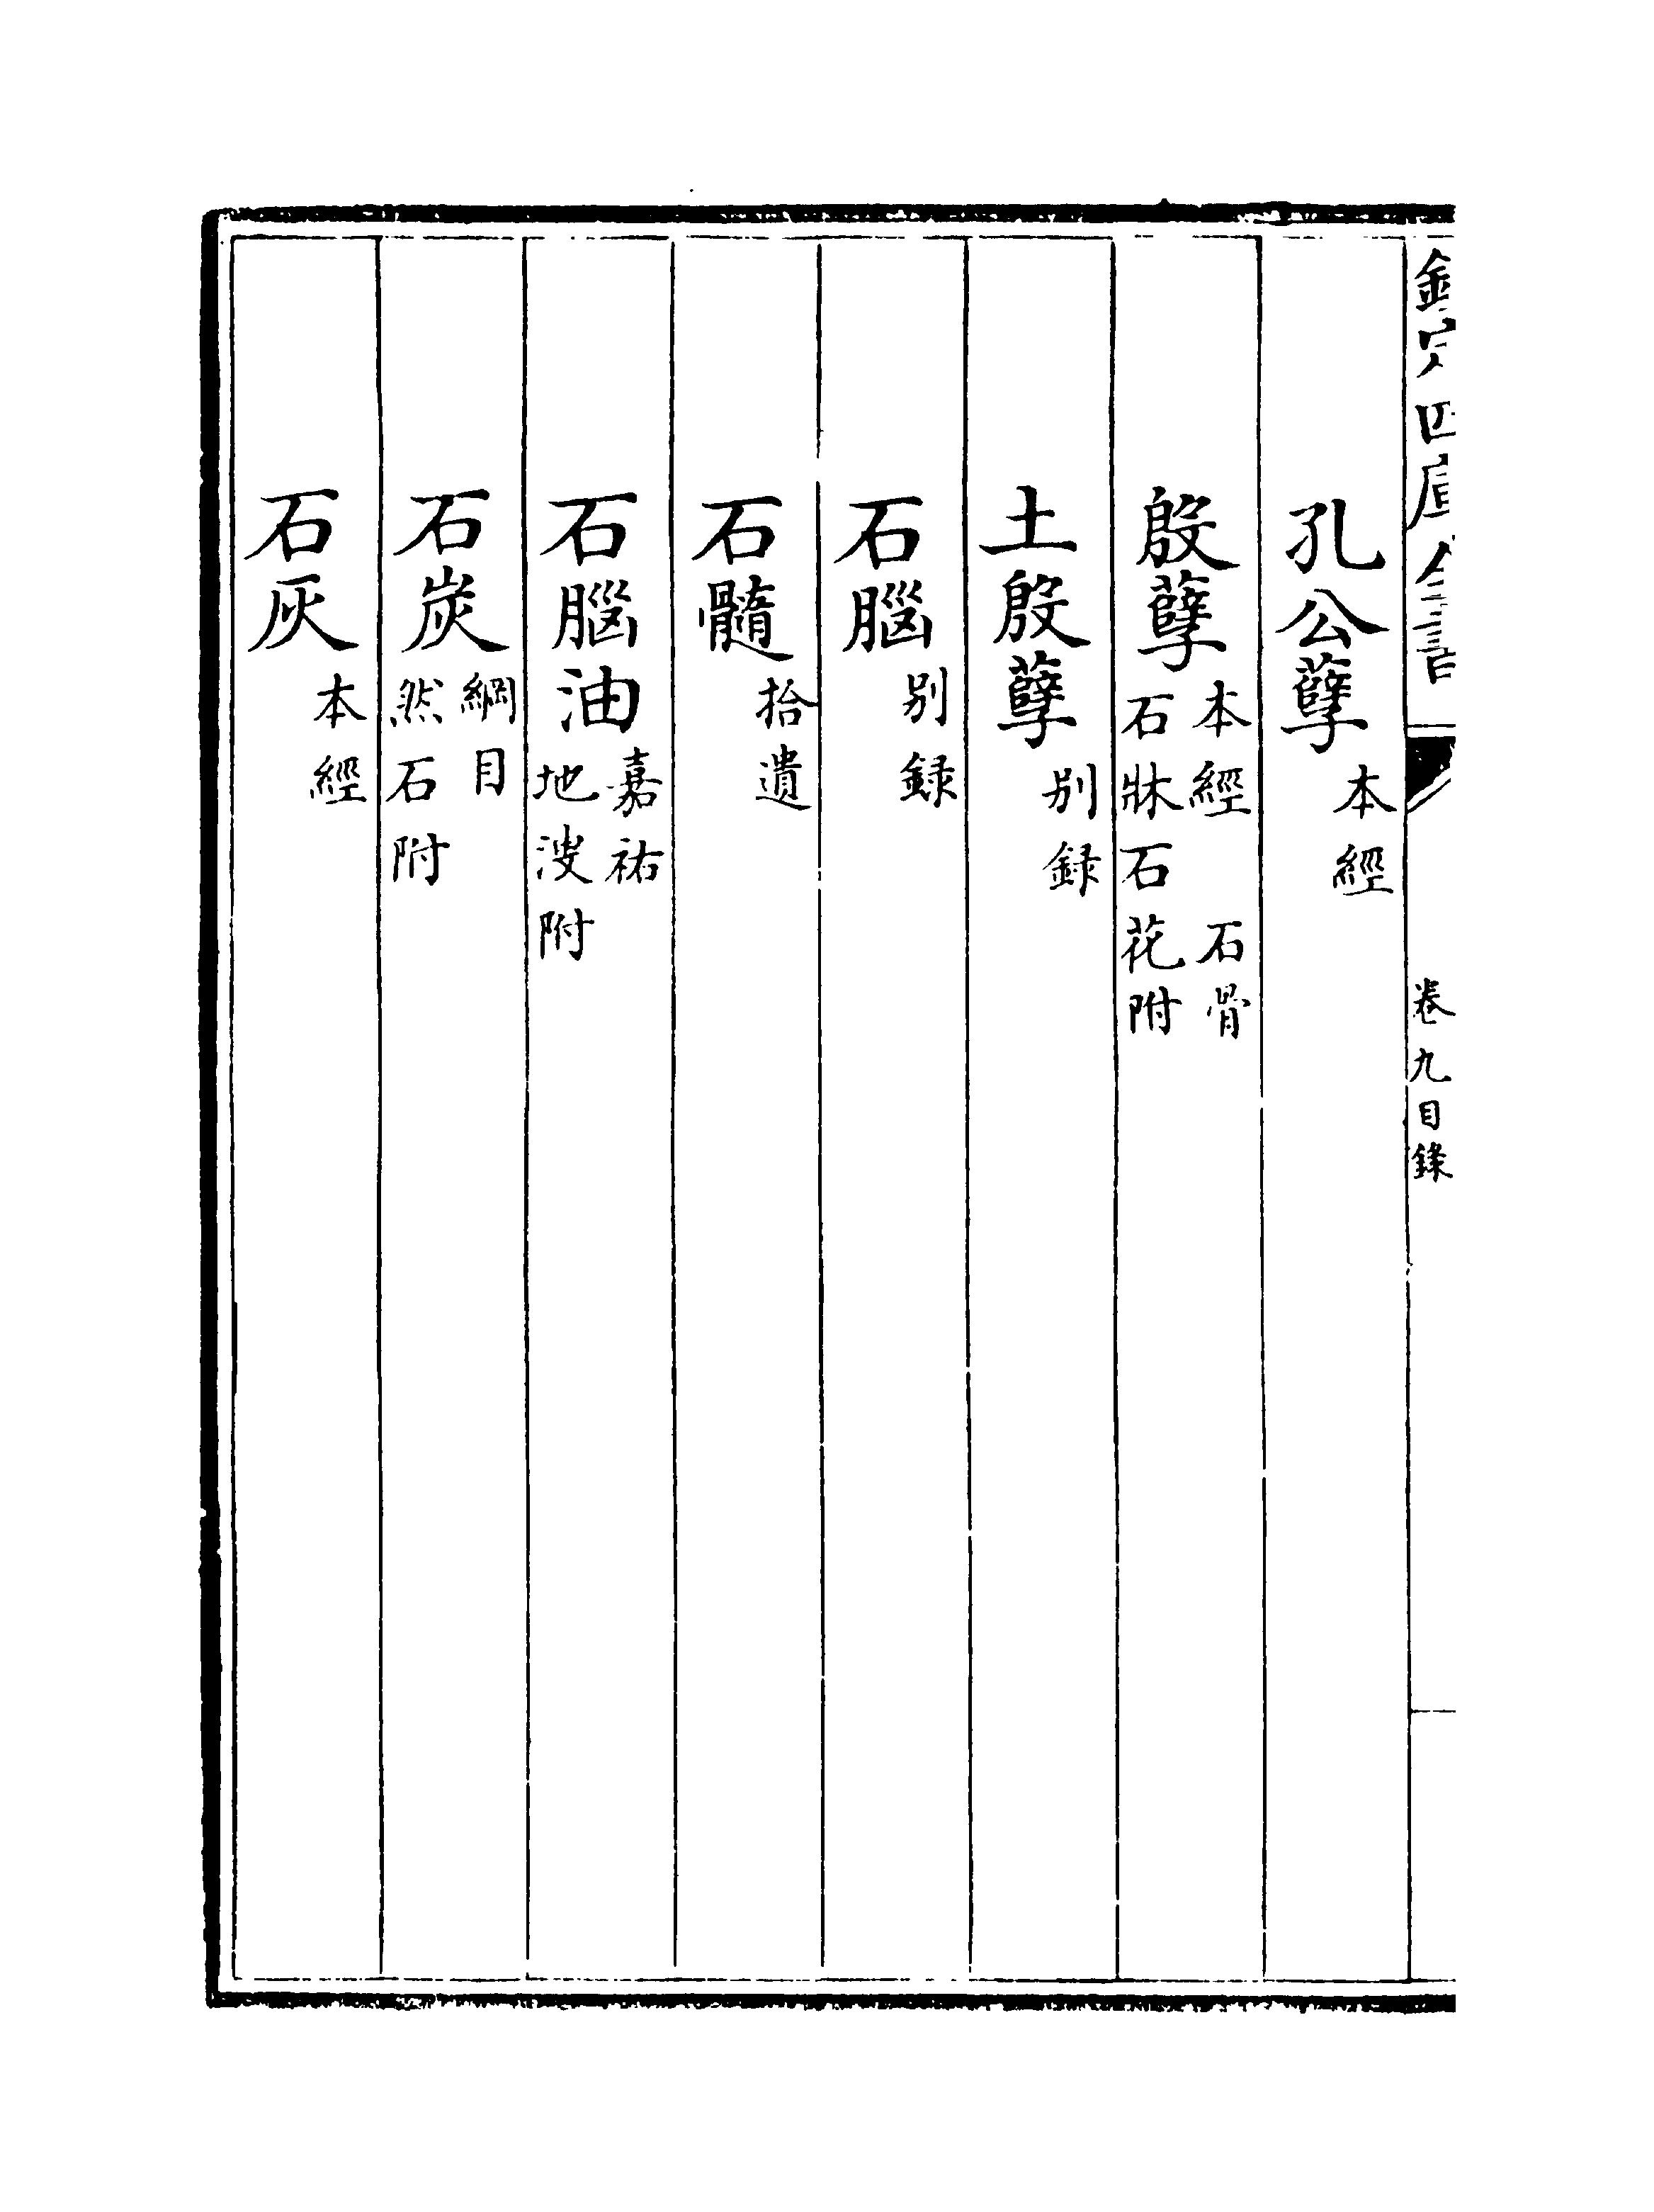 欽定四庫全書 卷九目錄
孔公孽本經
殷孽本經 石骨
石牀石花附
土殷孽别録
石腦别録
石髓拾遺
石腦油嘉祐
地溲附
石炭綱目
然石附
石灰本經